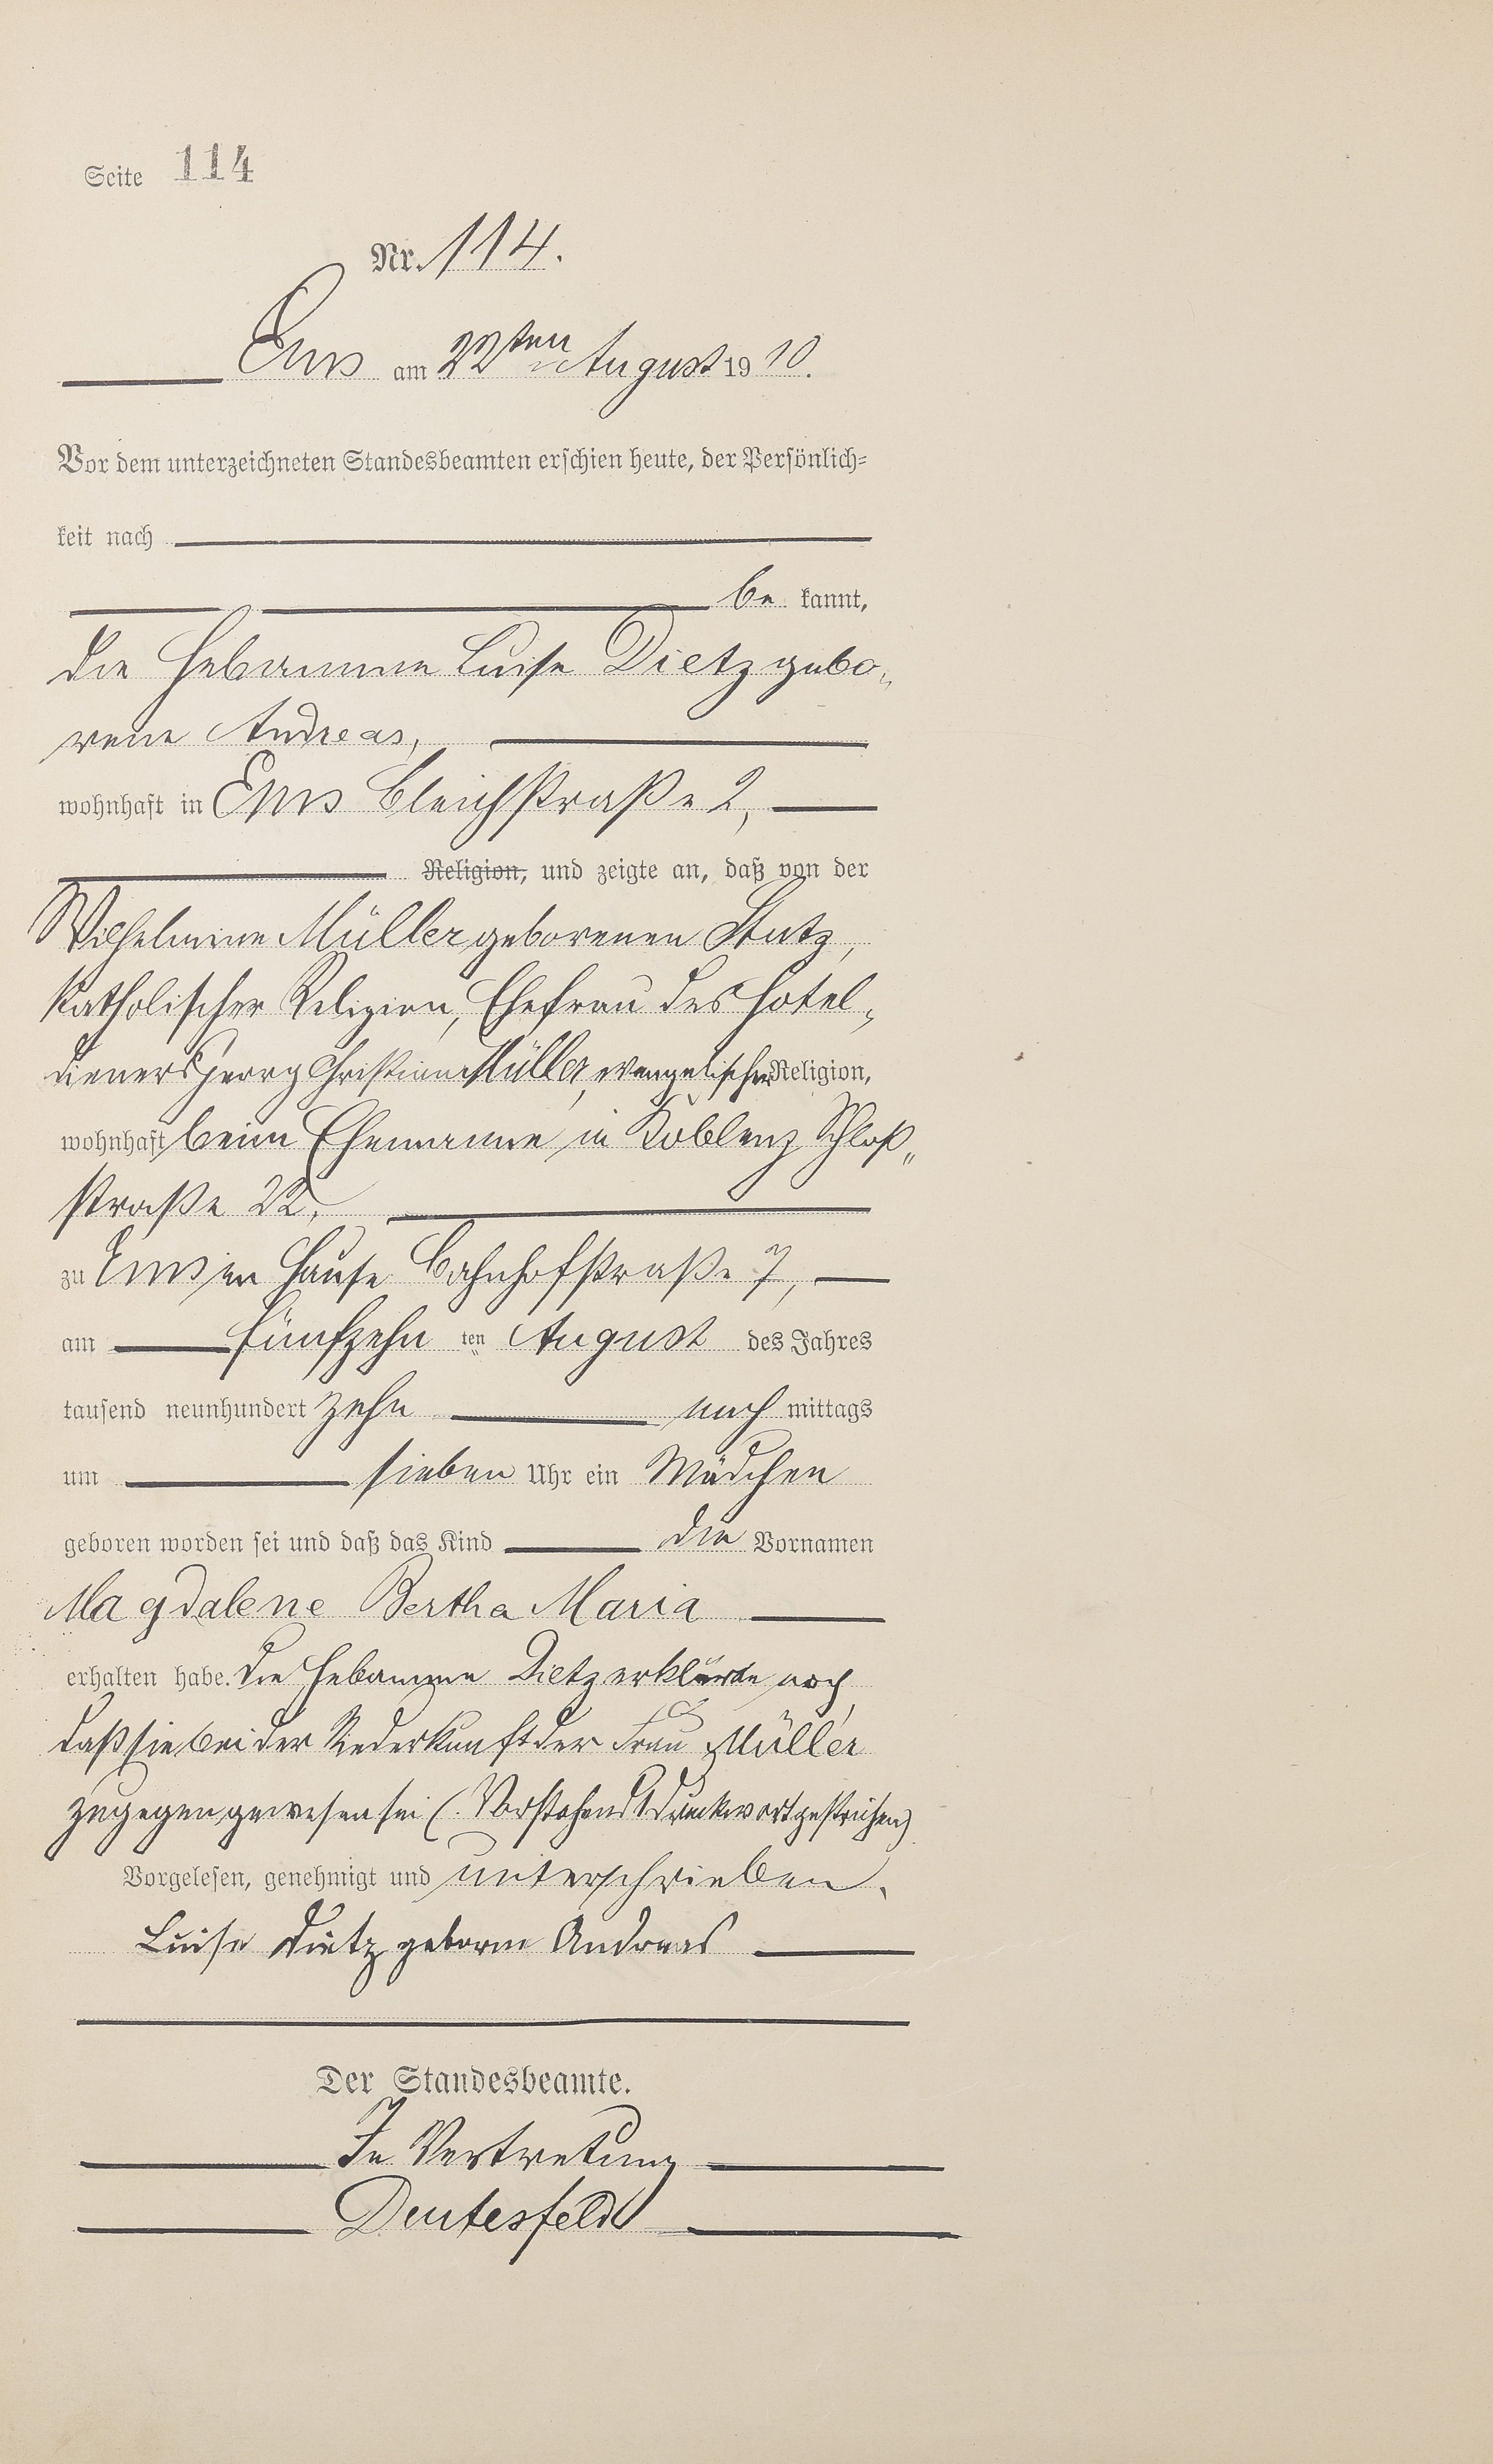 Seite 114
Nr. 114.
Ems am 22ten August 1910.
Vor dem unterzeichneten Standesbeamten erschien heute, der Persönlich-
keit nach
be kannt,
die Hebamme Luise Dietz gebo-
rene Andreas,
wohnhaft in Ems Bleichstraße 2,
Religion, und zeigte an, daß von der
Wilhelmine Müller geborenen Stutz,
katholischer Religion, Ehefrau des Hotel-
dieners Georg Christian Müller, evangelischer Religion,
wohnhaft beim Ehemanne in Koblenz Schloß-
straße 22,
zu Ems im Hause Bahnhofstraße 7,
am fünfzehn ten August des Jahres
tausend neunhundert zehn nach mittags
um sieben Uhr ein Mädchen
geboren worden sei und daß das Kind die Vornamen
Magdalene Bertha Maria
erhalten habe. Die Hebamme Dietz erklärte noch,
daß sie bei der Niederkunft der Frau Müller
zugegen gewesen sei (. Vorstehend 1 Druckwort gestrichen)
Vorgelesen, genehmigt und unterschrieben.
Luise Dietz geborne Andreas
Der Standesbeamte.
In Vertretung